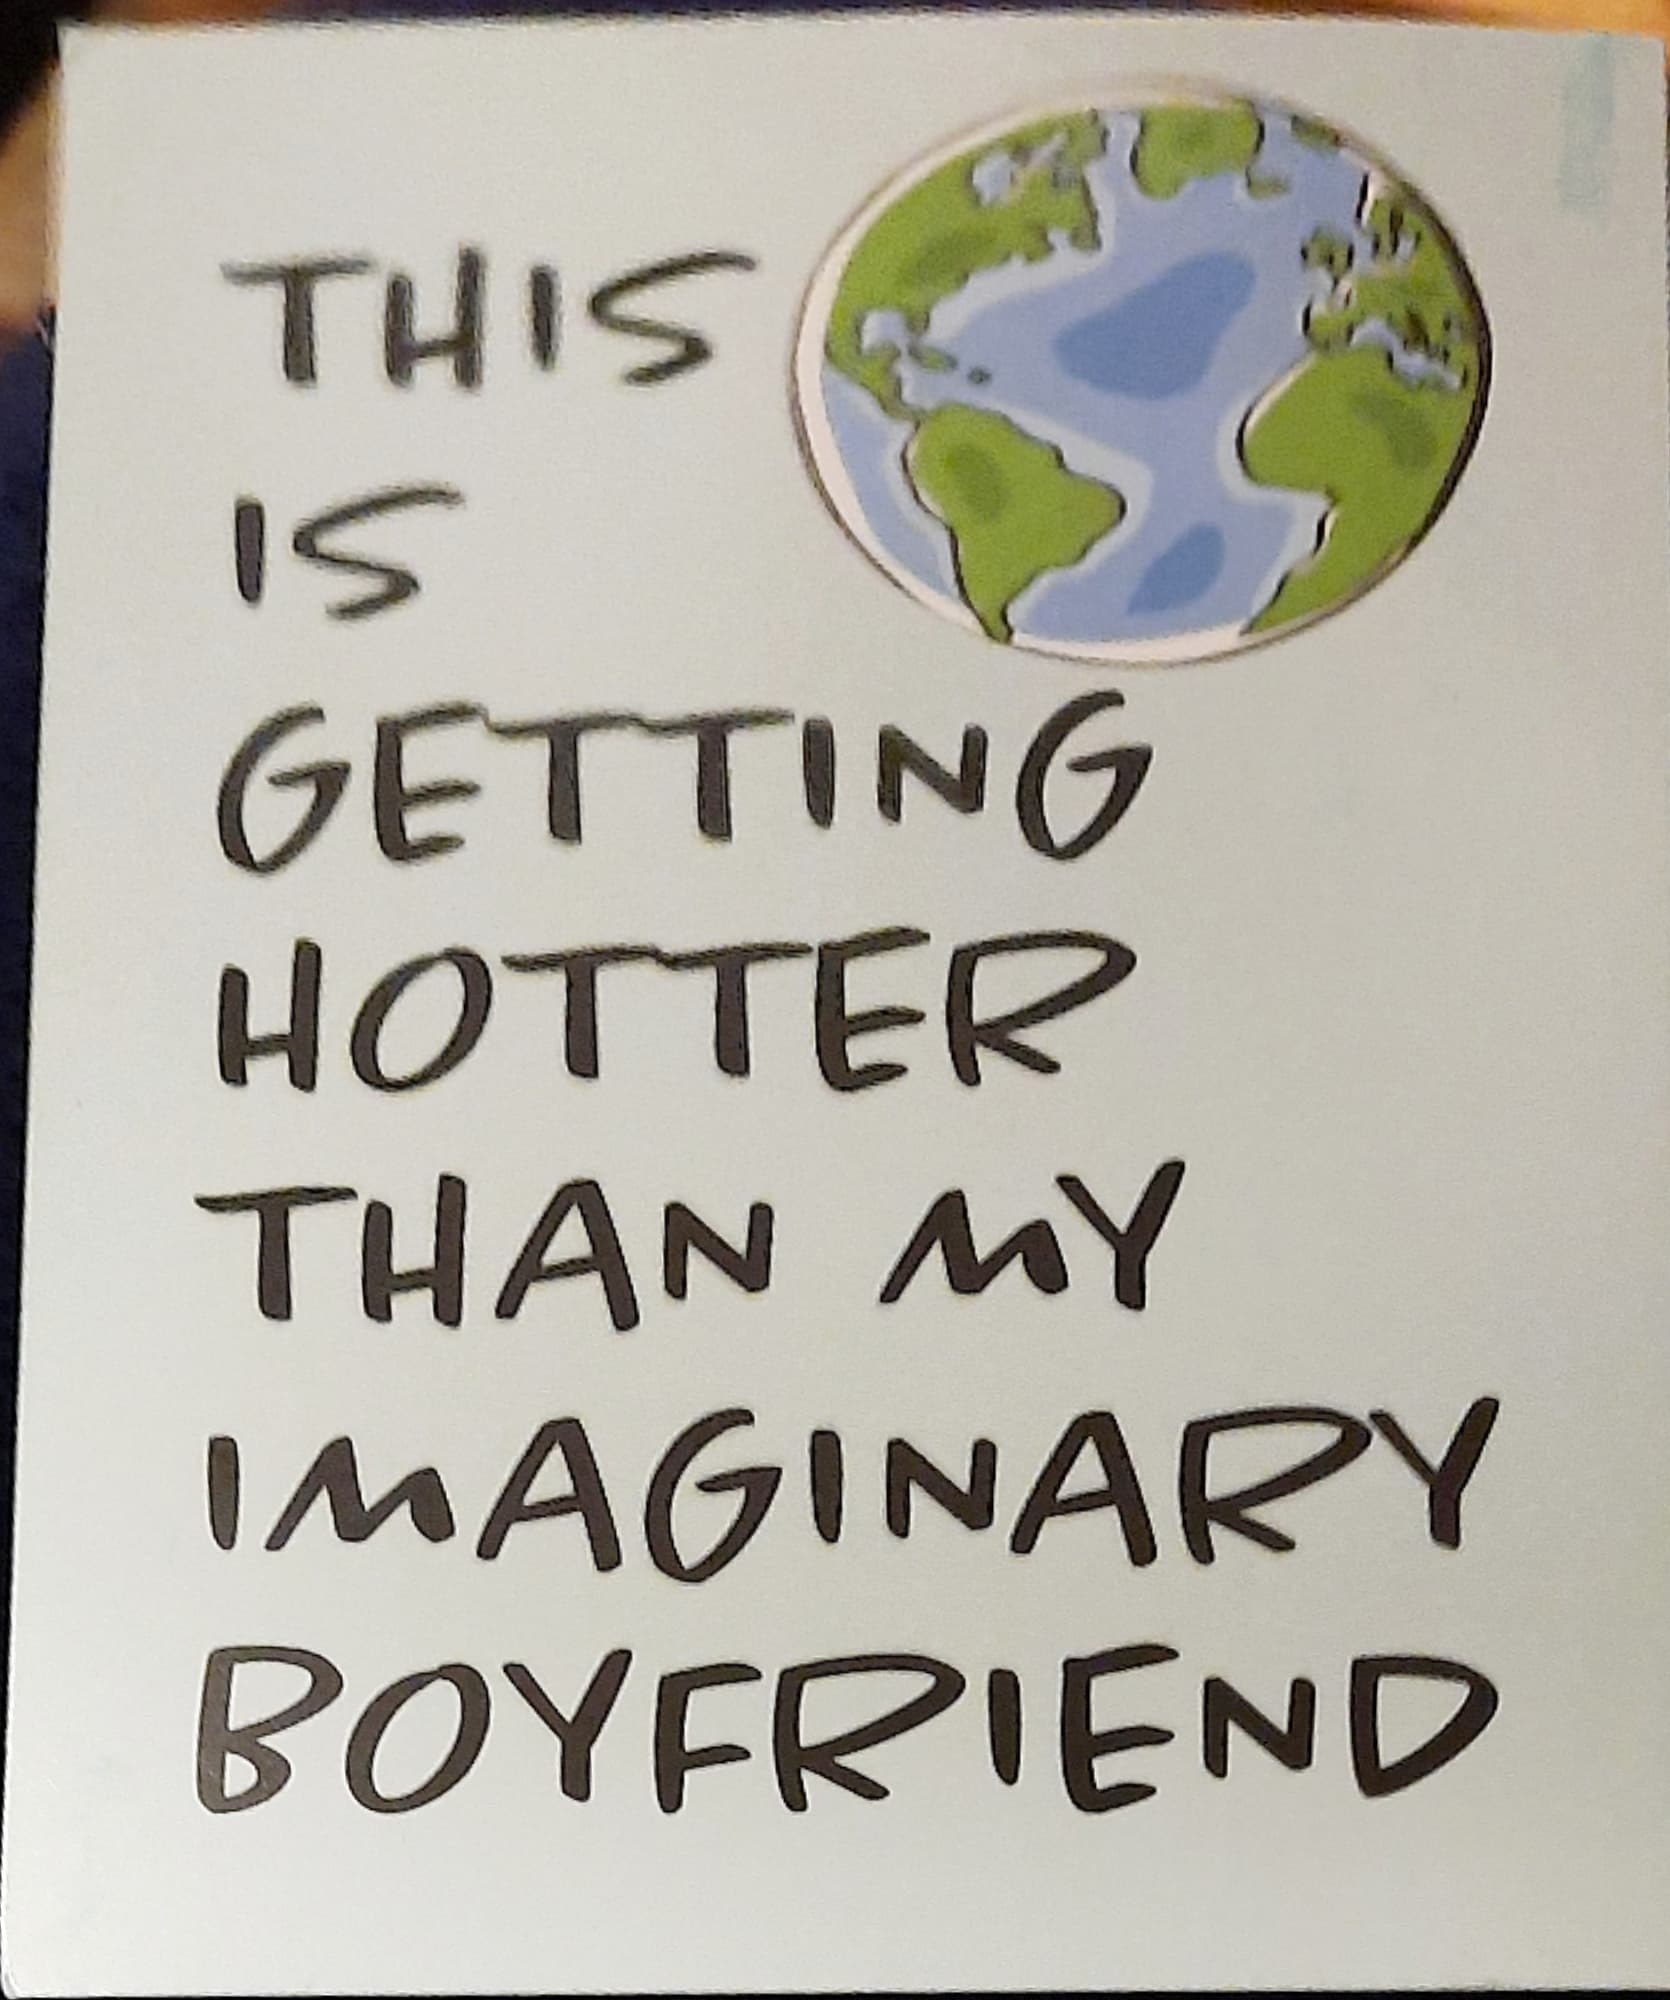 THIS
IS
GETTING
HOTTER
THAN MY
IMAGINARY
BOYFRIEND